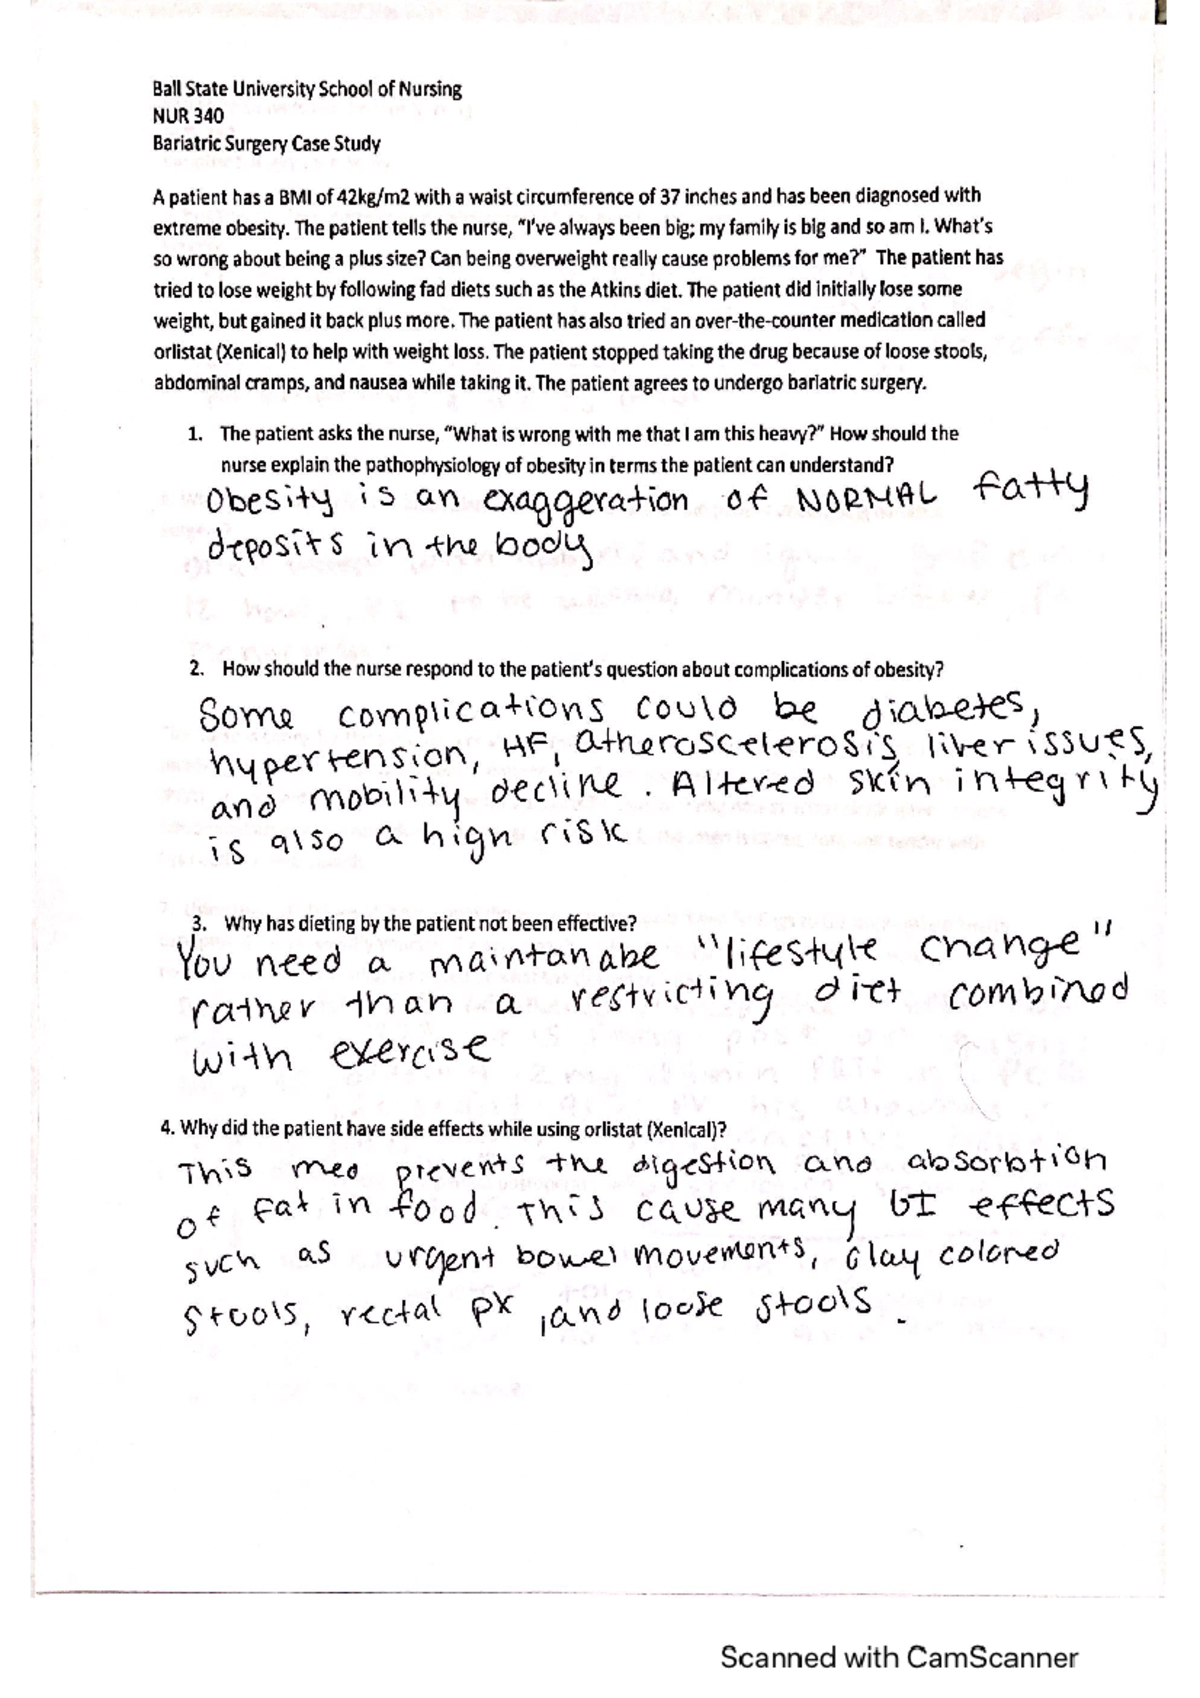 Ball State University School of Nursing
NUR 340
Bariatric Surgery Case Study
A patient has a BMI of 42kg/m2 with a waist circumference of 37 inches and has been diagnosed with
extreme obesity. The patient tells the nurse, "I've always been big; my family is big and so am I. What's
so wrong about being a plus size? Can being overweight really cause problems for me?" The patient has
tried to lose weight by following fad diets such as the Atkins diet. The patient did initially lose some
weight, but gained it back plus more. The patient has also tried an over-the-counter medication called
orlistat (Xenical) to help with weight loss. The patient stopped taking the drug because of loose stools,
abdominal cramps, and nausea while taking it. The patient agrees to undergo bariatric surgery.
1. The patient asks the nurse, "What is wrong with me that I am this heavy?" How should the
nurse explain the pathophysiology of obesity in terms the patient can understand?
Obesity is an exaggeration of NORMAL fatty
deposits in the body
2. How should the nurse respond to the patient's question about complications of obesity?
Some complications could be diabetes,
hypertension, HF, atheroscelerosis, liver issues,
and mobility decline. Altered skin integrity
is also a high risk
3. Why has dieting by the patient not been effective?
You need a maintanabe "lifestyle change"
rather than a restricting diet combined
with exercise
4. Why did the patient have side effects while using orlistat (Xenical)?
This med prevents the digestion and absorbtion
of fat in food. This cause many GI effects
such as urgent bowel movements, clay colored
stools, rectal px, and loose stools.
Scanned with CamScanner